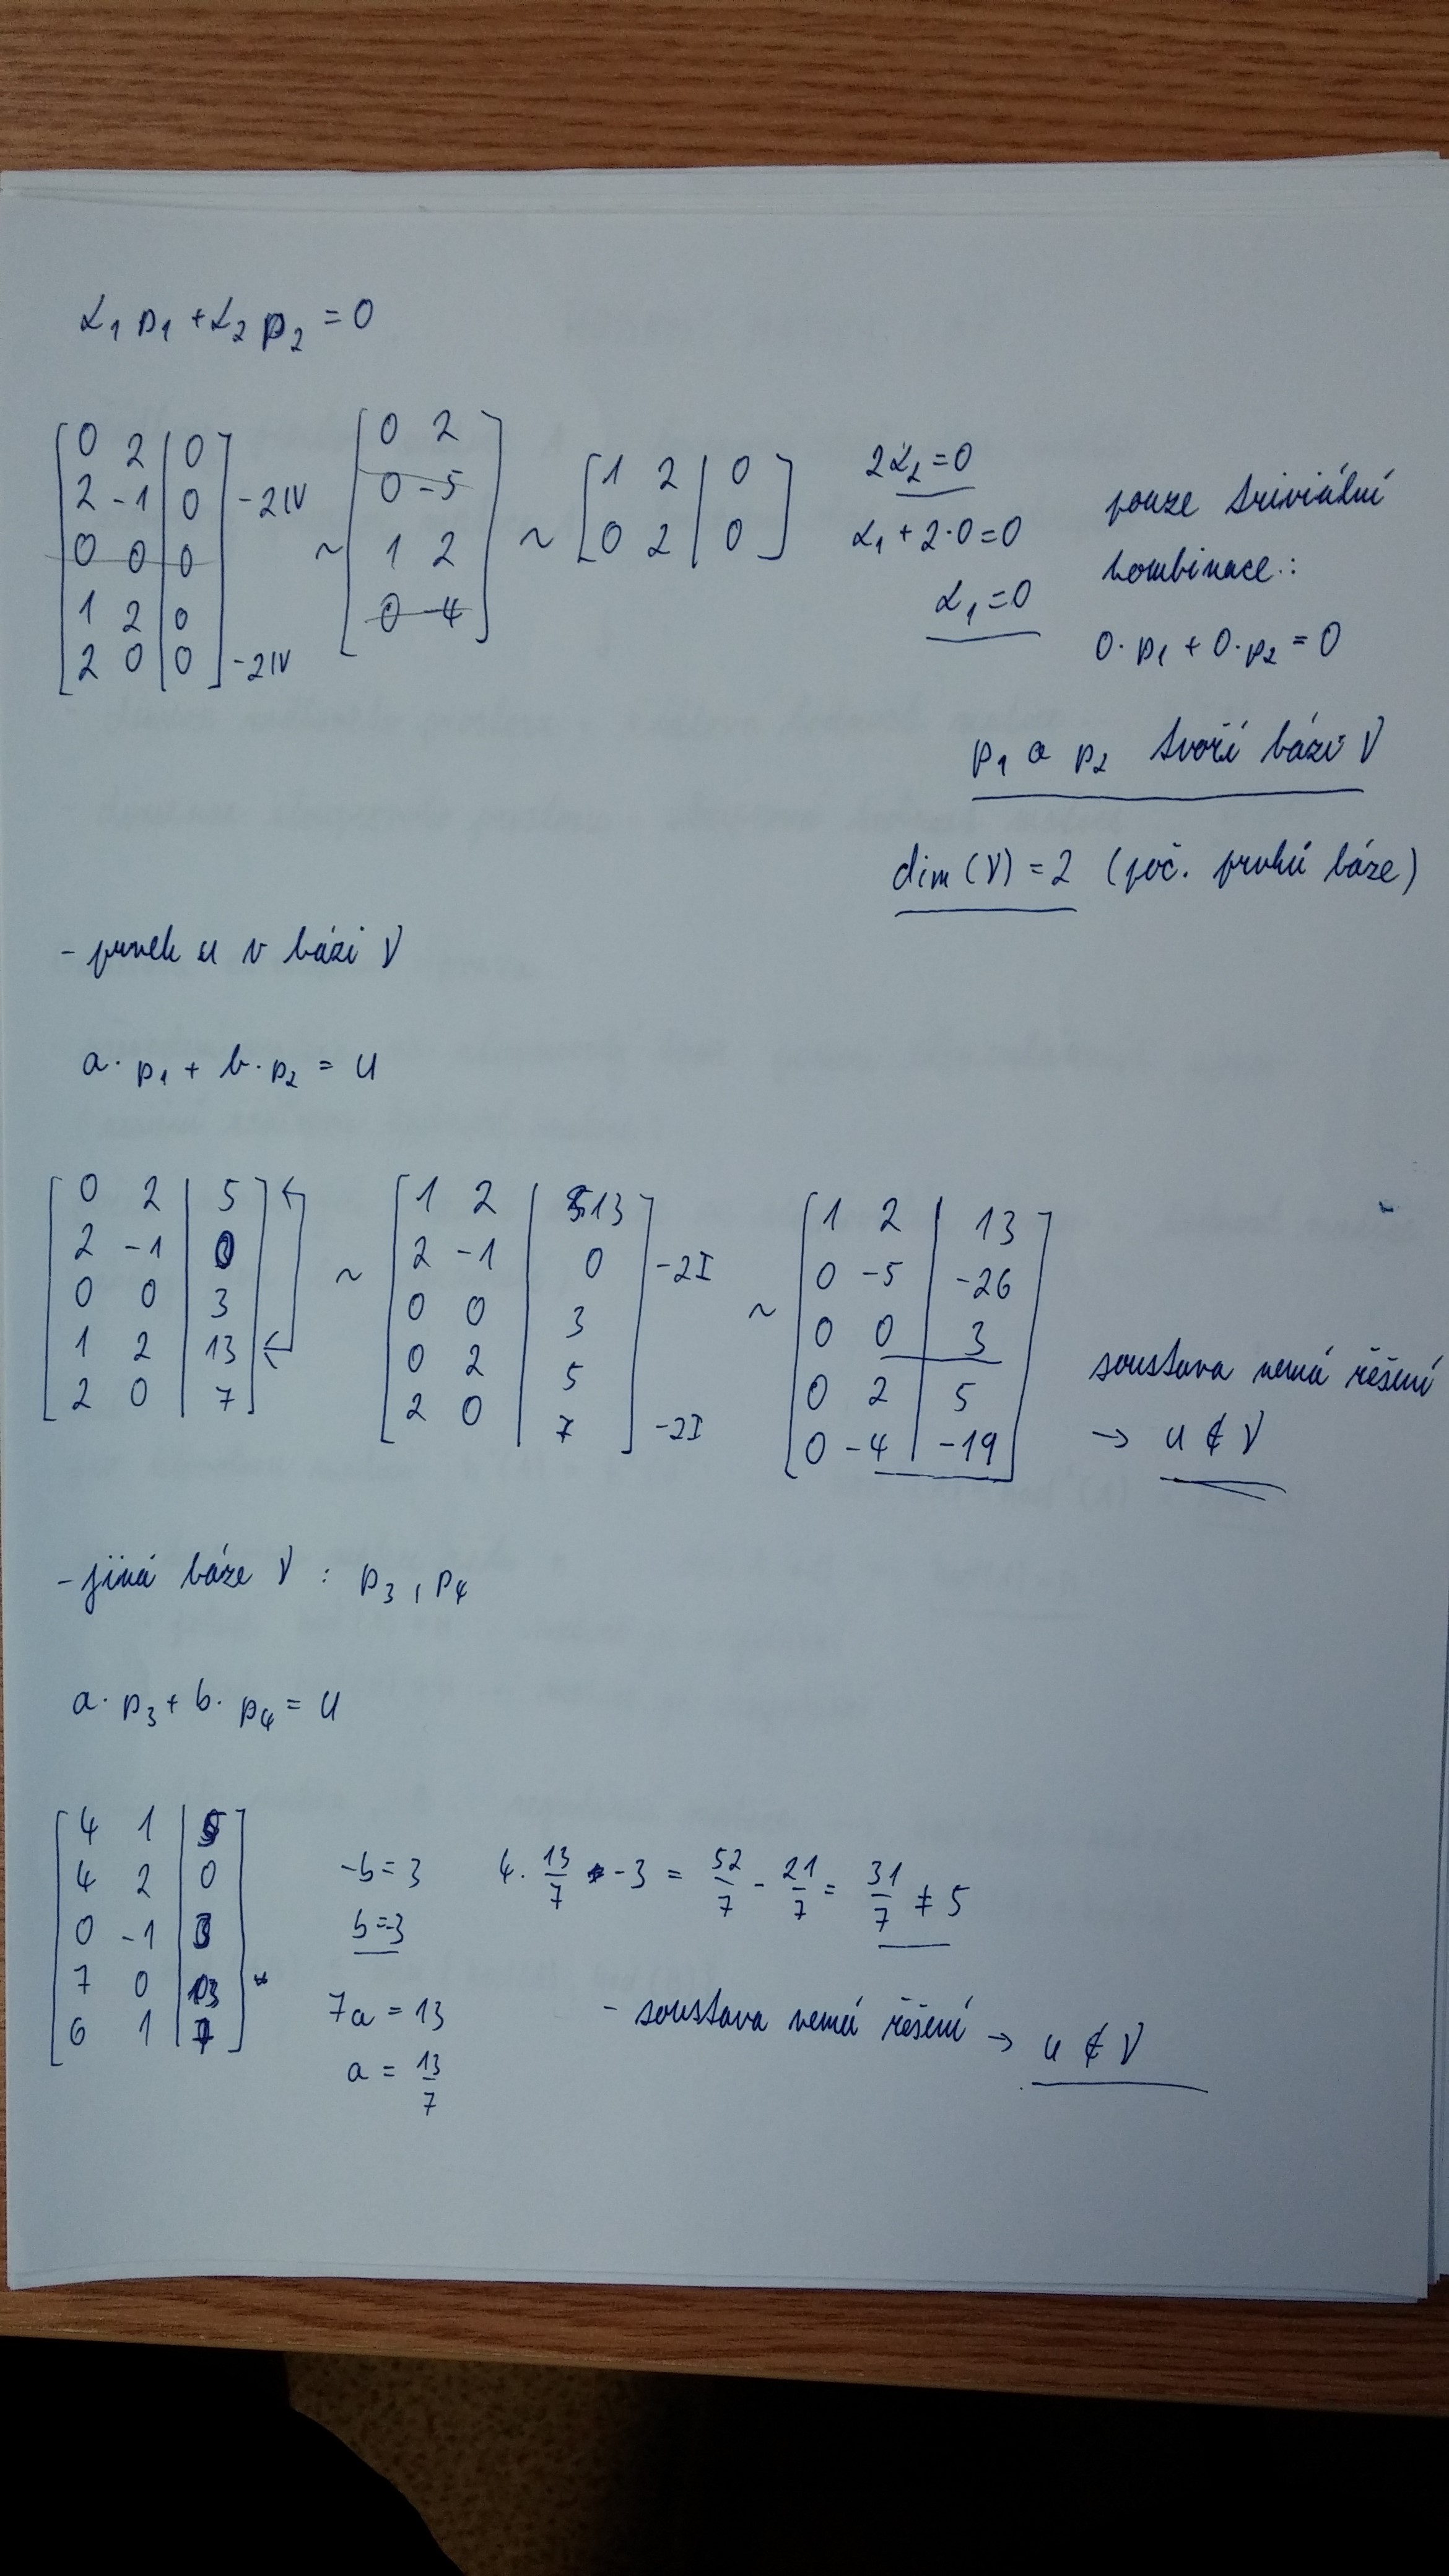 α₁ p₁ + α₂ p₂ = 0
[0 2 | 0]
[2 -1 | 0] -2IV
[0 0 | 0]
[1 2 | 0]
[2 0 | 0] -2IV
~
[0 2]
[0 -5]
[1 2]
[0 -4]
~
[1 2 | 0]
[0 2 | 0]
2α₂ = 0
α₁ + 2·0 = 0
α₁ = 0
pouze triviální
kombinace:
0·p₁ + 0·p₂ = 0
p₁ a p₂ tvoří bázi V
dim (V) = 2 (poč. prvků báze)
- prvek u v bázi V
a·p₁ + b·p₂ = u
[0 2 | 5]
[2 -1 | 0]
[0 0 | 3]
[1 2 | 13]
[2 0 | 7]
~
[1 2 | 13]
[2 -1 | 0] -2I
[0 0 | 3]
[0 2 | 5]
[2 0 | 7] -2I
~
[1 2 | 13]
[0 -5 | -26]
[0 0 | 3]
[0 2 | 5]
[0 -4 | -19]
soustava nemá řěšení
→ u ∉ V
- jiná báze V : p₃, p₄
a·p₃ + b·p₄ = u
[4 1 | 5]
[4 2 | 0]
[0 -1 | 3]
[7 0 | 13]
[6 1 | 7]
-b = 3
b = -3
7a = 13
a = 13/7
4·13/7 - 3 = 52/7 - 21/7 = 31/7 ≠ 5
- soustava nemá řěšení → u ∉ V